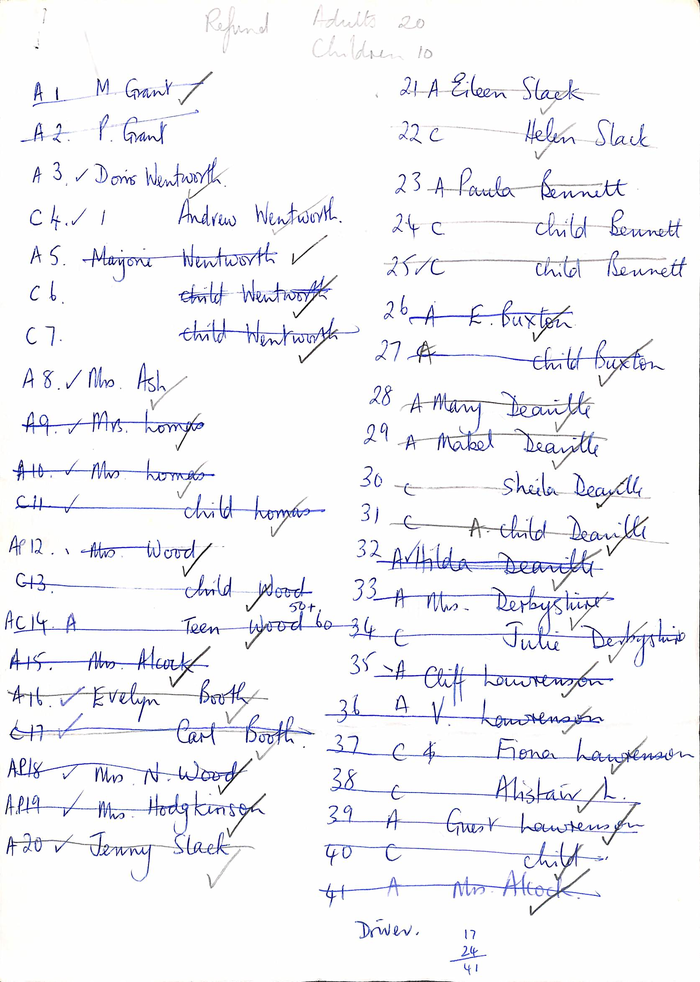 Refund Adults 20
Children 10
A 1 M Grant ✓
A 2. P. Grant
A 3. ✓ Doris Wentworth.
C 4. ✓ 1 Andrew Wentworth.
A 5. Marjorie Wentworth ✓
C 6. child Wentworth
C 7. child Wentworth
A 8. ✓ Mrs. Ash
A9. ✓ Mrs. Lomas
A10. ✓ Mrs Lomas
C11 ✓ child Lomas
AP 12. Mrs Wood
C13. child Wood
50+
AC 14. A Teen Wood 60
A15. Mrs. Alcock
A16. ✓ Evelyn Booth
C17 ✓ Carl Booth.
AP18 ✓ Mrs N. Wood
AP19 ✓ Mrs. Hodgkinson
A 20 ✓ Jenny Slack
21 A Eileen Slack
22 C Helen Slack
23 A Paula Bennett
24 C child Bennett
25 ✓ C child Bennett
26 A E. Buxton
27 A child Buxton
28 A Mary Deaville
29 A Mabel Deaville
30 C Sheila Deaville
31 C A. Child Deaville
32 A ✓ Hilda Deaville
33 A Mrs. Derbyshire
34 C Julie Derbyshire
35 A Cliff Lawrenson
36 A V. Lawrenson
37 C Fiona Lawrenson
38 C Alistair L.
39 A Guest Lawrenson
40 C child
41 A Mrs. Alcock.
Driver.
17
24
41